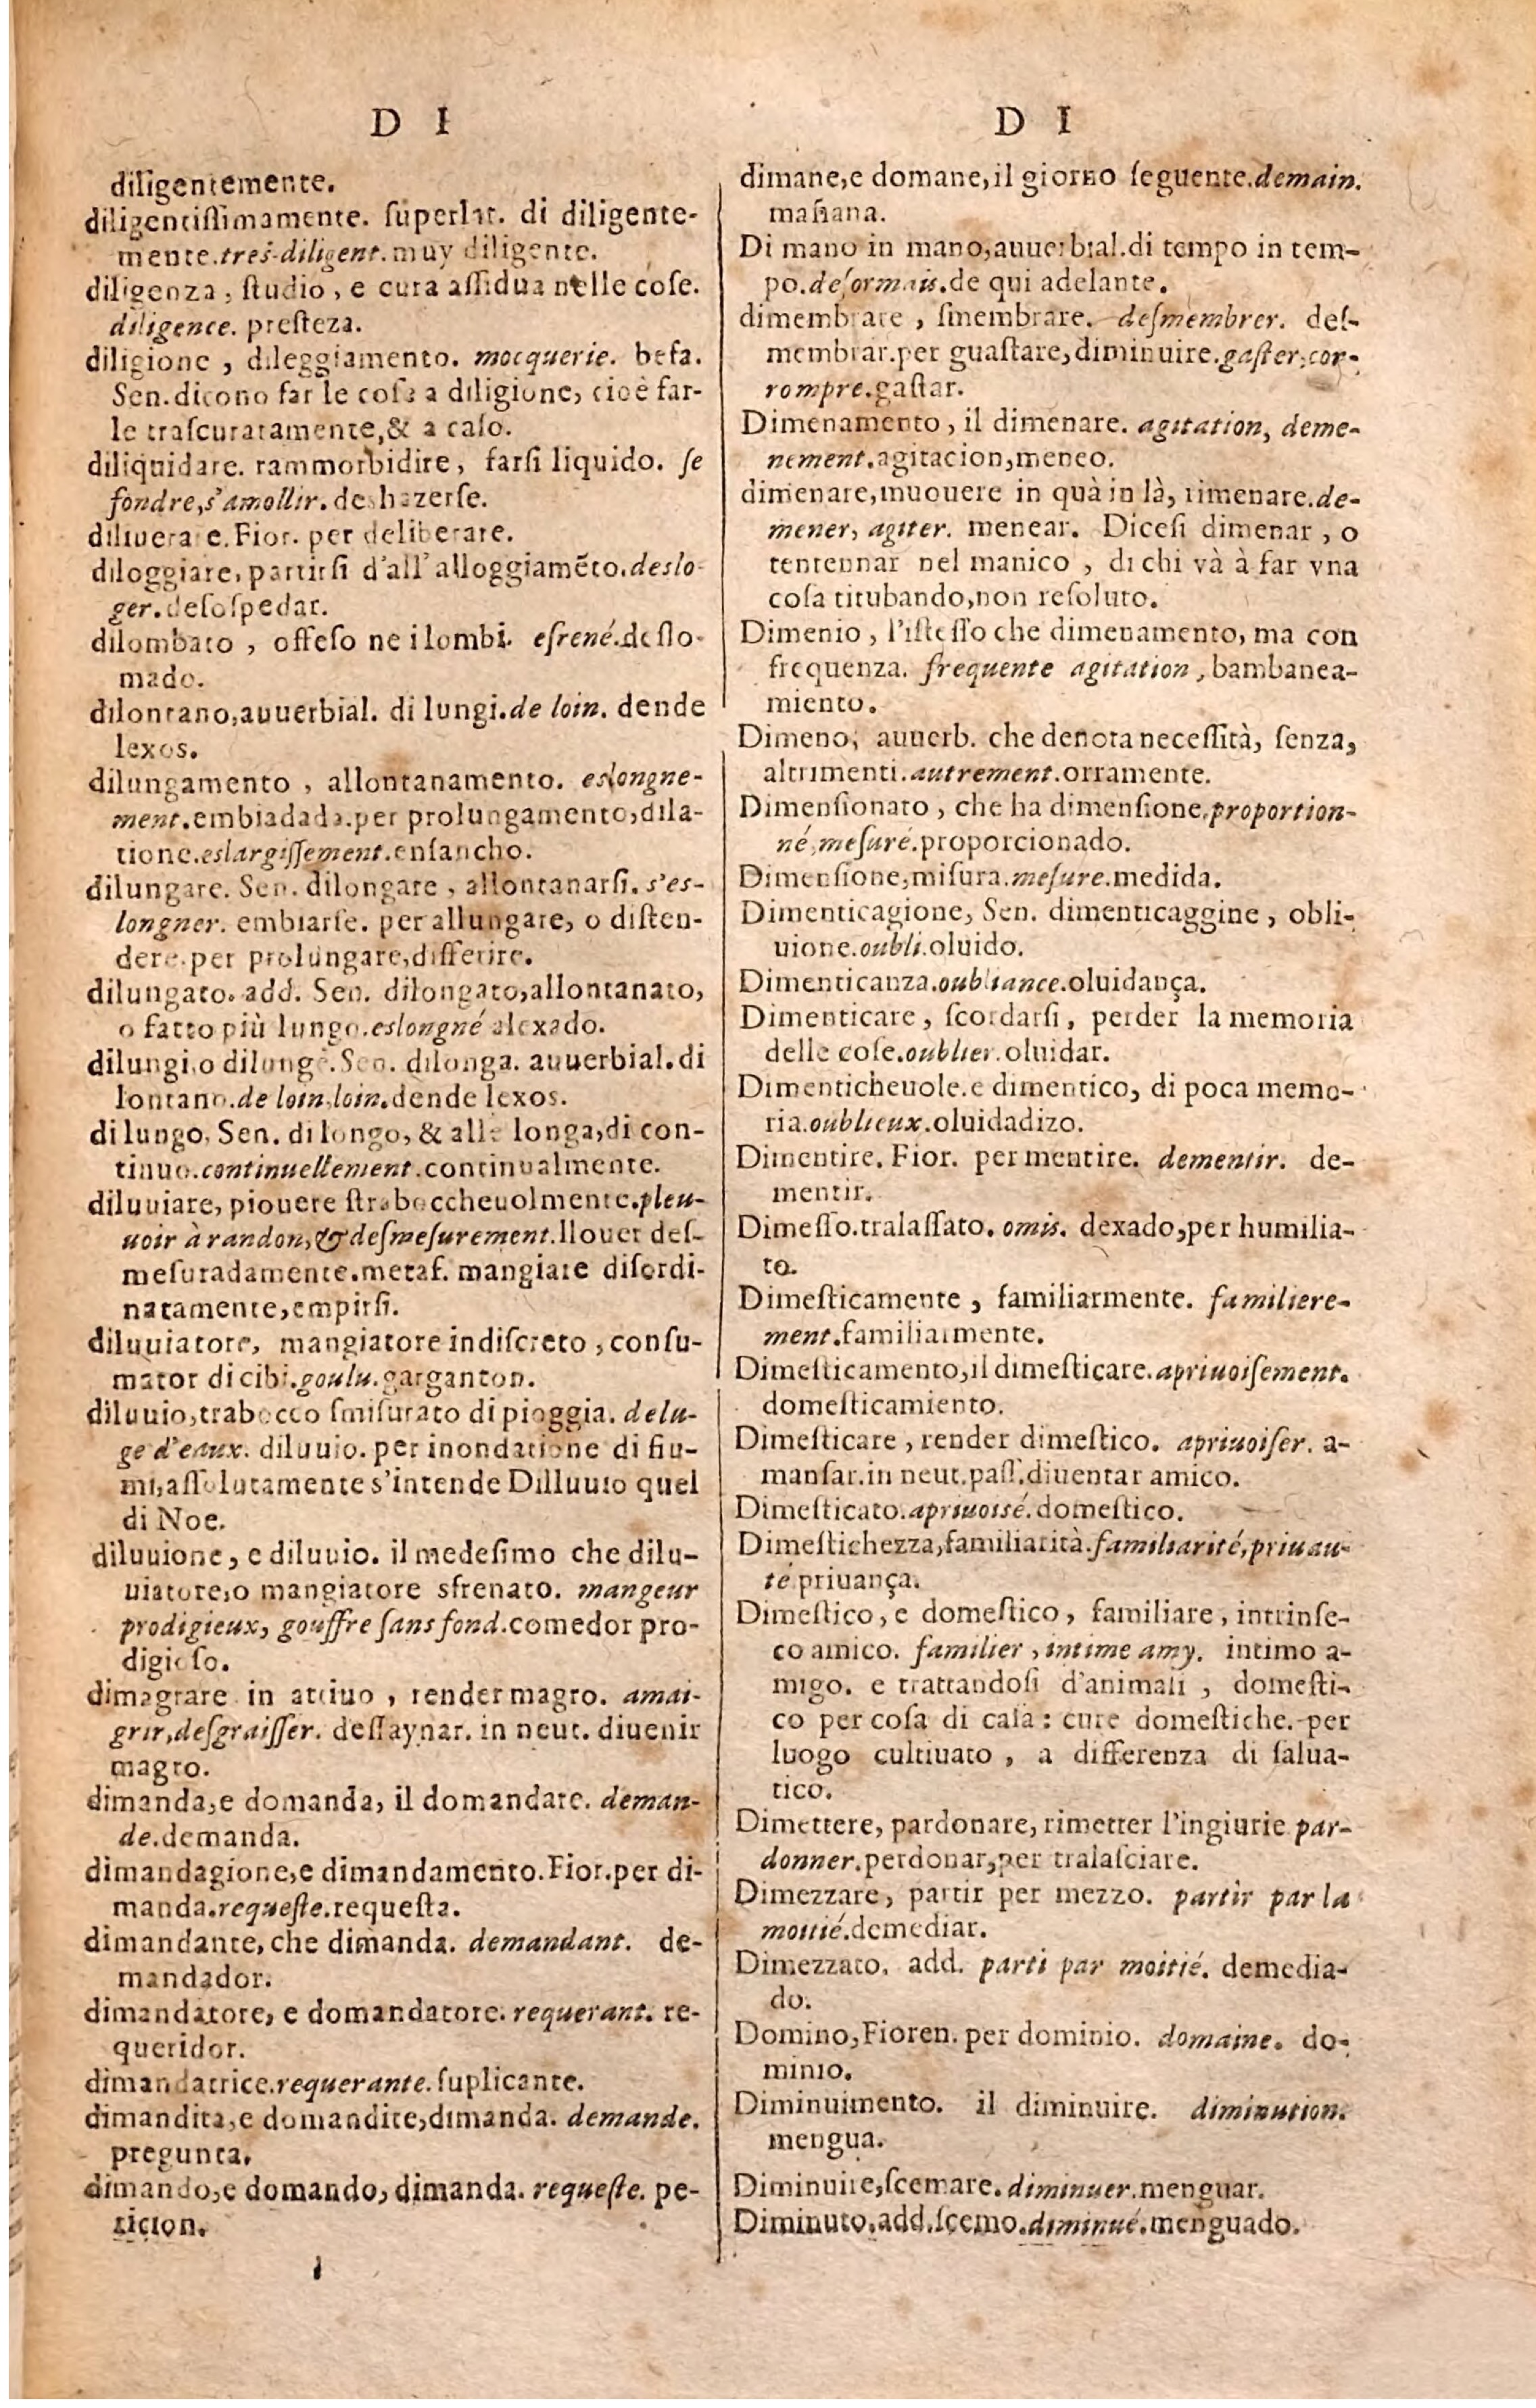 D I
diligentemente.
diligentiſſimamente. ſuperlat. di diligente-
mente.tres-diligent.muy diligente.
diligenza, ſtudio, e cura aſſidua nelle coſe.
diligence. preſteza.
diligione, dileggiamento. mocquerie. befa.
Sen.dicono far le coſe a diligione, cioè far-
le traſcuratamente,& a caſo.
diliquidare. rammorbidire, farſi liquido. ſe
fondre,s'amollir. deshazerſe.
diliuerare.Fior. per deliberare.
diloggiare, partirſi d'all'alloggiamẽto.deslo-
ger.deſoſpedar.
dilombato, offeſo ne i lombi. eſrené.deſlo-
mado.
dilontano,auuerbial. di lungi.de loin. dende
lexos.
dilungamento, allontanamento. eslongne-
ment.embiadada.per prolungamento,dila-
tione.eslargiſſement.enſancho.
dilungare. Sen. dilongare, allontanarſi. s'es-
longner. embiarſe. per allungare, o diſten-
dere.per prolungare,differire.
dilungato. add. Sen. dilongato,allontanato,
o fatto più lungo.eslongné alexado.
dilungi,o dilunge.Sen. dilonga. auuerbial.di
lontano.de loin,loin.dende lexos.
di lungo, Sen. di longo, & alle longa,di con-
tinuo.continuellement.continualmente.
diluuiare, piouere ſtraboccheuolmente.pleu-
uoir à randon,& deſmeſurement.llouer deſ-
meſuradamente.metaf. mangiare diſordi-
natamente,empirſi.
diluuiatore, mangiatore indiſcreto, conſu-
mator di cibi.goulu.garganton.
diluuio,trabocco ſmiſurato di pioggia. delu-
ge d'eaux. diluuio. per inondatione di fiu-
mi,aſſolutamente s'intende Dilluuio quel
di Noe.
diluuione, e diluuio. il medeſimo che dilu-
uiatore,o mangiatore sfrenato. mangeur
prodigieux, gouffre ſans fond.comedor pro-
digioſo.
dimagrare in attiuo, render magro. amai-
grir,deſgraiſſer. deſſaynar. in neut. diuenir
magro.
dimanda,e domanda, il domandare. deman-
de.demanda.
dimandagione,e dimandamento.Fior.per di-
manda.requeſte.requeſta.
dimandante, che dimanda. demandant. de-
mandador.
dimandatore, e domandatore. requerant. re-
queridor.
dimandatrice.requerante.ſuplicante.
dimandita,e domandite,dimanda. demande.
pregunta.
dimando,e domando, dimanda. requeſte. pe-
ticion.
D I
dimane,e domane,il giorno ſeguente.demain.
mañana.
Di mano in mano,auuerbial.di tempo in tem-
po.deſormais.de qui adelante.
dimembrare, ſmembrare. deſmembrer. deſ-
membrar.per guaſtare,diminuire.gaſter,cor-
rompre.gaſtar.
Dimenamento, il dimenare. agitation, deme-
nement.agitacion,meneo.
dimenare,muouere in quà in là, rimenare.de-
mener, agiter. menear. Diceſi dimenar, o
tentennar nel manico, di chi và à far vna
coſa titubando,non reſoluto.
Dimenio, l'iſteſſo che dimenamento, ma con
frequenza. frequente agitation, bambanea-
miento.
Dimeno, auuerb. che denota neceſſità, ſenza,
altrimenti.autrement.orramente.
Dimenſionato, che ha dimenſione.proportion-
né,meſuré.proporcionado.
Dimenſione,miſura.meſure.medida.
Dimenticagione, Sen. dimenticaggine, obli-
uione.oubli.oluido.
Dimenticanza.oubliance.oluidança.
Dimenticare, ſcordarſi, perder la memoria
delle coſe.oublier.oluidar.
Dimenticheuole.e dimentico, di poca memo-
ria.oublieux.oluidadizo.
Dimentire. Fior. per mentire. dementir. de-
mentir.
Dimeſſo.tralaſſato. omis. dexado,per humilia-
to.
Dimeſticamente, familiarmente. familiere-
ment.familiarmente.
Dimeſticamento,il dimeſticare.apriuoiſement.
domeſticamiento.
Dimeſticare, render dimeſtico. apriuoiſer. a-
manſar.in neut.paſſ.diuentar amico.
Dimeſticato.apriuoisé.domeſtico.
Dimeſtichezza,familiarità.familiarité,priuau-
té.priuança.
Dimeſtico, e domeſtico, familiare, intrinſe-
co amico. familier, intime amy. intimo a-
migo. e trattandoſi d'animali, domeſti-
co per coſa di caſa: cure domeſtiche. per
luogo cultiuato, a differenza di ſalua-
tico.
Dimettere, pardonare, rimetter l'ingiurie par-
donner.perdonar,per tralaſciare.
Dimezzare, partir per mezzo. partir par la
moitié.demediar.
Dimezzato. add. parti par moitié. demedia-
do.
Domino,Fioren. per dominio. domaine. do-
minio.
Diminuimento. il diminuire. diminution.
mengua.
Diminuire,ſcemare.diminuer.menguar.
Diminuto,add.ſcemo.diminué.menguado.